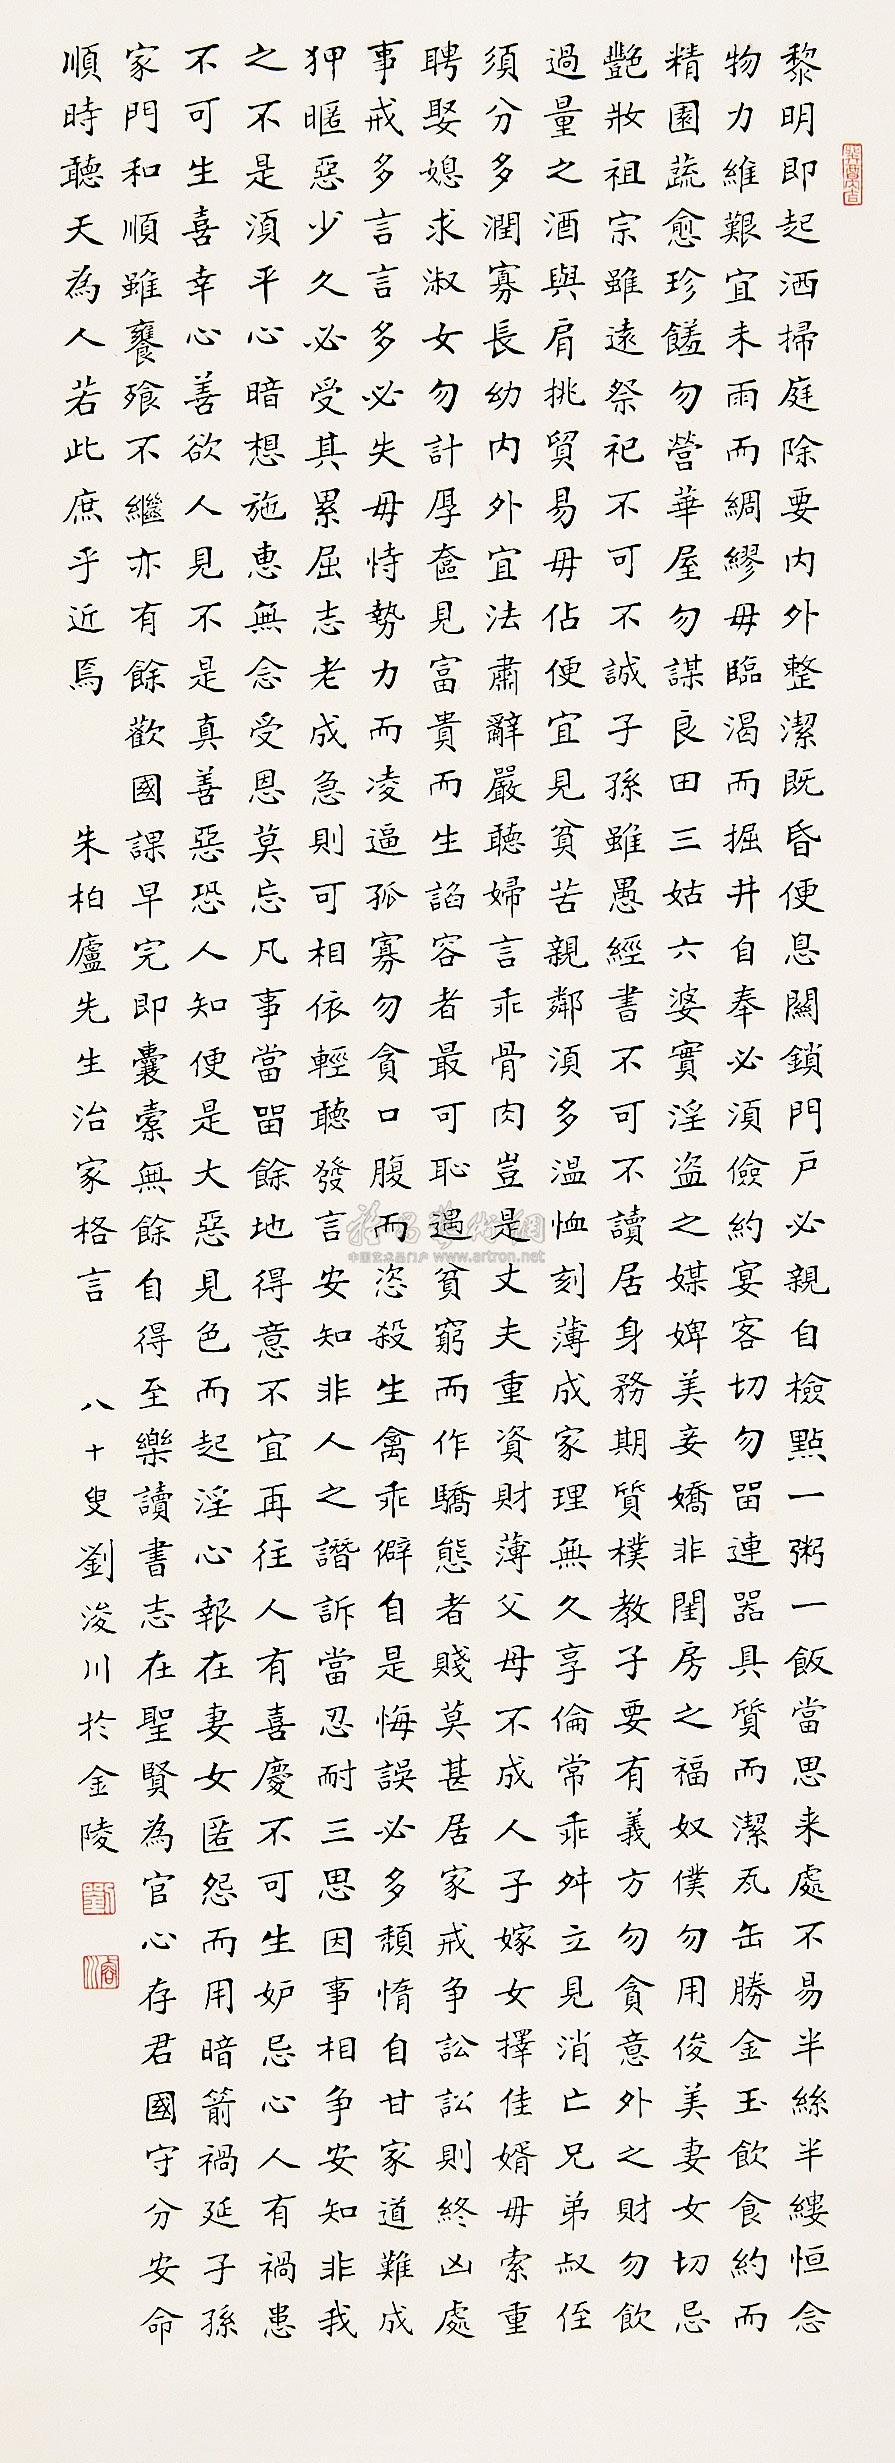 黎明即起洒掃庭除要内外整潔既昏便息關鎖門戶必親自檢點一粥一飯當思来處不易半絲半縷恒念
物力維艱宜未雨而綢繆毋臨渴而掘井自奉必須儉約宴客切勿留連器具質而潔瓦缶勝金玉飲食約而
精園蔬愈珍饈勿營華屋勿謀良田三姑六婆實淫盗之媒婢美妾嬌非閨房之福奴僕勿用俊美妻女切忌
艷妝祖宗雖遠祭祀不可不誠子孫雖愚經書不可不讀居身務期質樸教子要有義方勿貪意外之財勿飲
過量之酒與肩挑貿易毋佔便宜見貧苦親鄰須多温恤刻薄成家理無久享倫常乖舛立見消亡兄弟叔侄
須分多潤寡長幼内外宜法肅辭嚴聽婦言乖骨肉豈是丈夫重資財薄父母不成人子嫁女擇佳婿毋索重
聘娶媳求淑女勿計厚奩見富貴而生諂容者最可恥遇貧窮而作驕態者賤莫甚居家戒争訟訟則終凶處
事戒多言言多必失毋恃勢力而凌逼孤寡勿貪口腹而恣殺生禽乖僻自是悔誤必多頹惰自甘家道難成
狎暱惡少久必受其累屈志老成急則可相依輕聽發言安知非人之譖訴當忍耐三思因事相争安知非我
之不是須平心暗想施惠無念受恩莫忘凡事當留餘地得意不宜再往人有喜慶不可生妒忌心人有禍患
不可生喜幸心善欲人見不是真善惡恐人知便是大惡見色而起淫心報在妻女匿怨而用暗箭禍延子孫
家門和順雖饔飧不繼亦有餘歡國課早完即囊橐無餘自得至樂讀書志在聖賢為官心存君國守分安命
順時聽天為人若此庶乎近焉 朱柏廬先生治家格言 八十叟劉浚川於金陵
雅昌藝術網
中国艺术品门户 www.artron.net